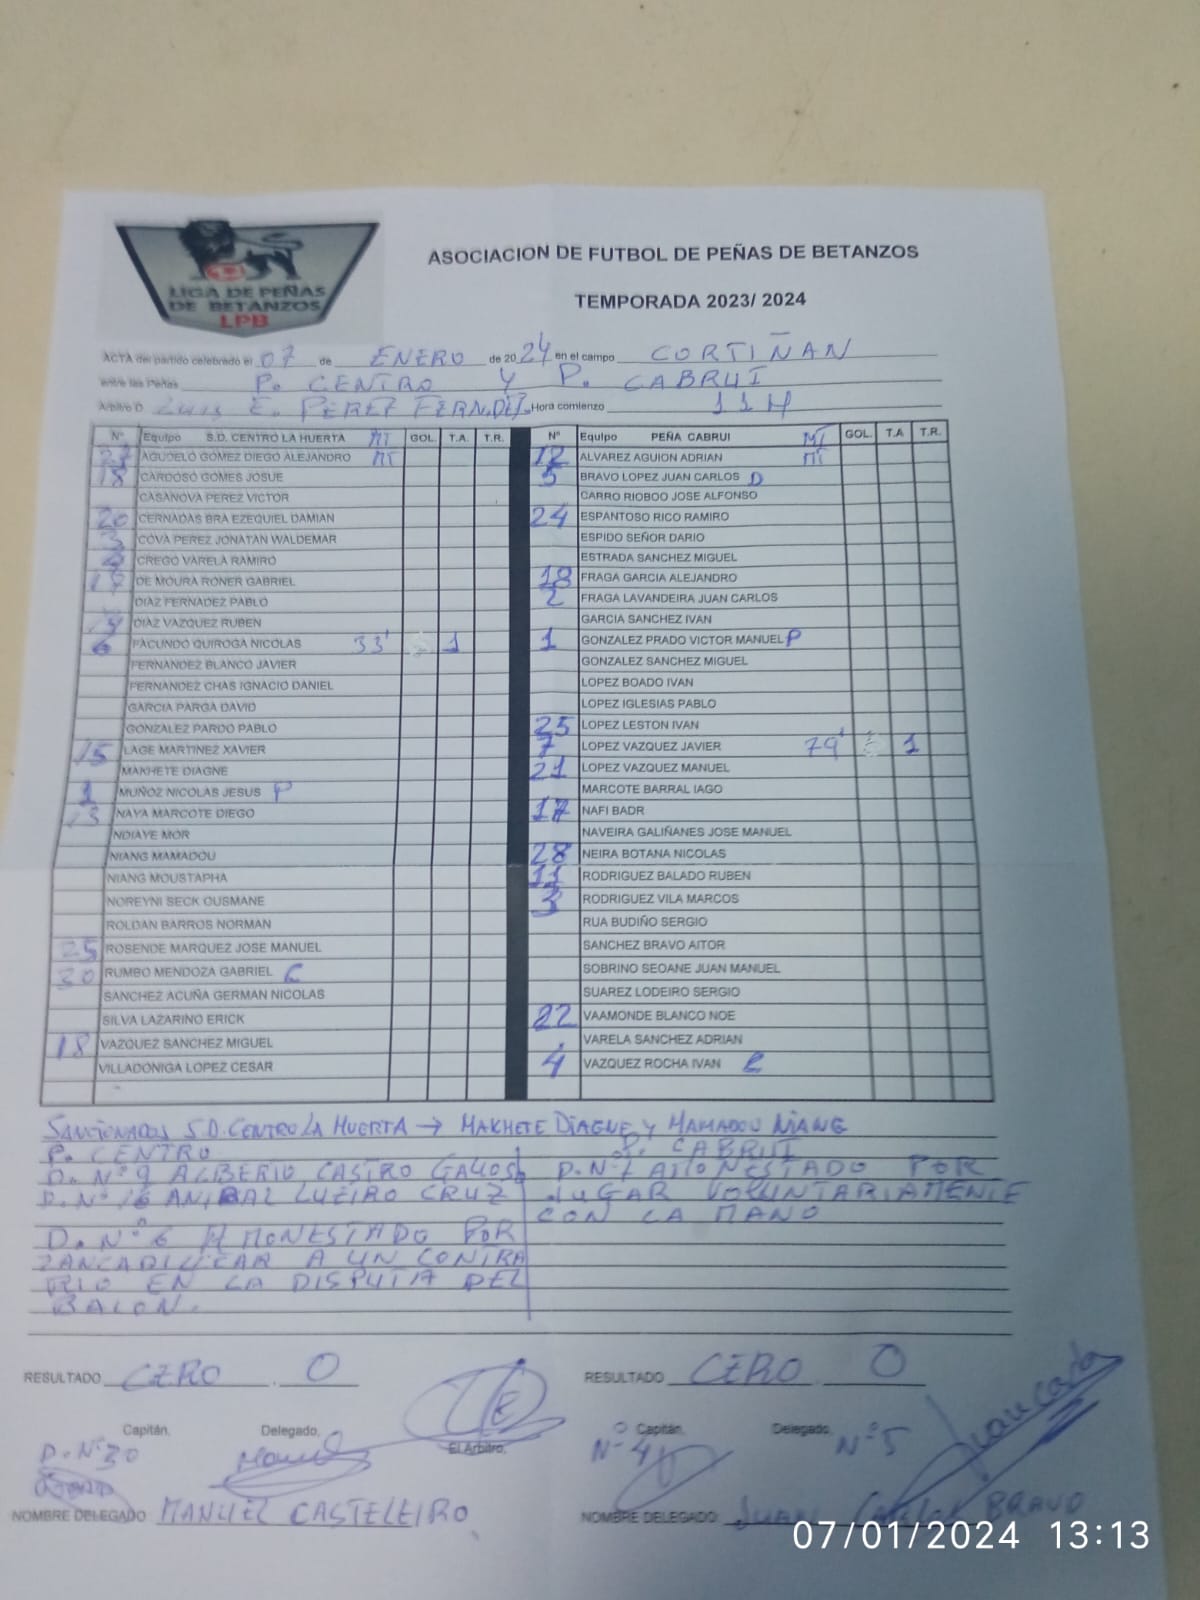 LIGA DE PEÑAS
DE BETANZOS
LPB
ASOCIACION DE FUTBOL DE PEÑAS DE BETANZOS
TEMPORADA 2023/ 2024
ACTA del partido celebrado el 07 de ENERO de 2024 en el campo CORTIÑAN
entre las Peñas P. CENTRO Y P. CABRUI
Arbitro D. LUIS E. PEREZ FERNDEZ. Hora comienzo 11H
Nº Equipo S.D. CENTRO LA HUERTA MT GOL. T.A. T.R. Nº Equipo PEÑA CABRUI MT GOL. T.A T.R.
27 AGUDELO GOMEZ DIEGO ALEJANDRO MT 12 ALVAREZ AGUION ADRIAN MT
18 CARDOSO GOMES JOSUE 5 BRAVO LOPEZ JUAN CARLOS D
CASANOVA PEREZ VICTOR CARRO RIOBOO JOSE ALFONSO
20 CERNADAS BRA EZEQUIEL DAMIAN 24 ESPANTOSO RICO RAMIRO
3 COVA PEREZ JONATAN WALDEMAR ESPIDO SEÑOR DARIO
CREGO VARELA RAMIRO ESTRADA SANCHEZ MIGUEL
DE MOURA RONER GABRIEL 18 FRAGA GARCIA ALEJANDRO
DIAZ FERNADEZ PABLO 2 FRAGA LAVANDEIRA JUAN CARLOS
DIAZ VAZQUEZ RUBEN GARCIA SANCHEZ IVAN
6 FACUNDO QUIROGA NICOLAS 33' 1 1 GONZALEZ PRADO VICTOR MANUEL P
FERNANDEZ BLANCO JAVIER GONZALEZ SANCHEZ MIGUEL
FERNANDEZ CHAS IGNACIO DANIEL LOPEZ BOADO IVAN
GARCIA PARGA DAVID LOPEZ IGLESIAS PABLO
GONZALEZ PARDO PABLO 25 LOPEZ LESTON IVAN
15 LAGE MARTINEZ XAVIER 7 LOPEZ VAZQUEZ JAVIER 79' 1
MAKHETE DIAGNE 21 LOPEZ VAZQUEZ MANUEL
1 MUÑOZ NICOLAS JESUS P MARCOTE BARRAL IAGO
13 NAYA MARCOTE DIEGO 17 NAFI BADR
NDIAYE MOR NAVEIRA GALIÑANES JOSE MANUEL
NIANG MAMADOU 28 NEIRA BOTANA NICOLAS
NIANG MOUSTAPHA 11 RODRIGUEZ BALADO RUBEN
NOREYNI SECK OUSMANE 3 RODRIGUEZ VILA MARCOS
ROLDAN BARROS NORMAN RUA BUDIÑO SERGIO
25 ROSENDE MARQUEZ JOSE MANUEL SANCHEZ BRAVO AITOR
30 RUMBO MENDOZA GABRIEL C SOBRINO SEOANE JUAN MANUEL
SANCHEZ ACUÑA GERMAN NICOLAS SUAREZ LODEIRO SERGIO
SILVA LAZARINO ERICK 22 VAAMONDE BLANCO NOE
18 VAZQUEZ SANCHEZ MIGUEL VARELA SANCHEZ ADRIAN
VILLADONIGA LOPEZ CESAR 4 VAZQUEZ ROCHA IVAN C
SANCIONADOS S.D. CENTRO LA HUERTA → MAKHETE DIAGNE Y MAMADOU NIANG
P. CENTRO P. CABRUI
D. Nº 9 ALBERTO CASTRO GALLOSO D. Nº 7 AMONESTADO POR
D. Nº 16 ANIBAL LUEIRO CRUZ JUGAR VOLUNTARIAMENTE
CON LA MANO
D. Nº 6 AMONESTADO POR
ZANCADILLEAR A UN CONTRA
RIO EN LA DISPUTA DEL
BALON.
RESULTADO CERO . 0 RESULTADO CERO . 0
Capitán, Delegado, El Arbitro, Capitán, Delegado,
D. Nº 30 Nº 4 Nº 5 Juan Carlos
NOMBRE DELEGADO MANUEL CASTELEIRO NOMBRE DELEGADO JUAN CARLOS BRAVO
07/01/2024 13:13